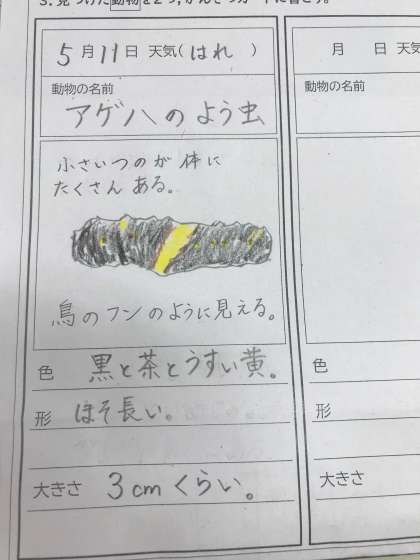 3. 見つけた動物を2つ、かんさつカードに書こう。
5月11日 天気(はれ)
動物の名前
アゲハのよう虫
小さいつのが体に
たくさんある。
鳥のフンのように見える。
色 黒と茶とうすい黄。
形 ほそ長い。
大きさ 3cmくらい。
月 日 天気
動物の名前
色
形
大きさ